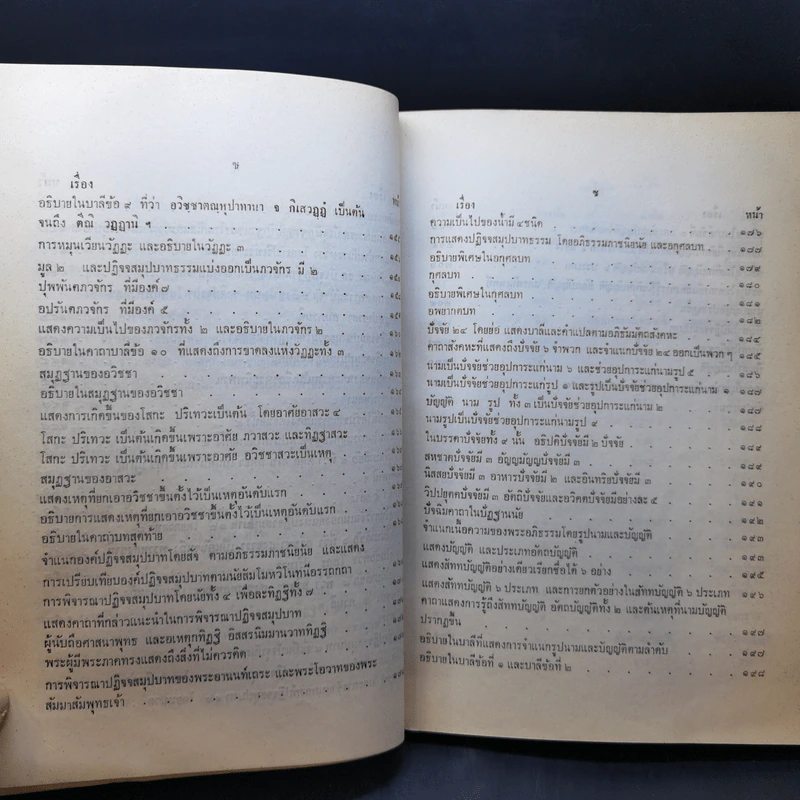 ษ
เรื่อง
อธิบายในบาลีข้อ ๙ ที่ว่า อวิชฺชาตณฺหุปาทานา จ กิเลสวฏฺฏํ เป็นต้น
จนถึง ตีณิ วฏฺฏานิ ฯ
การหมุนเวียนวัฏฏะ และอธิบายในวัฏฏะ ๓
มูล ๒ และปฏิจจสมุปบาทธรรมแบ่งออกเป็นภวจักร มี ๒
ปุพพันตภวจักร ที่มีองค์ ๗
อปรันตภวจักร ที่มีองค์ ๕
แสดงความเป็นไปของภวจักรทั้ง ๒ และอธิบายในภวจักร ๒
อธิบายในคาถาบาลีข้อ ๑๐ ที่แสดงถึงการขาดลงแห่งวัฏฏะทั้ง ๓
สมุฏฐานของอวิชชา
อธิบายในสมุฏฐานของอวิชชา
แสดงการเกิดขึ้นของโสกะ ปริเทวะเป็นต้น โดยอาศัยอาสวะ ๔
โสกะ ปริเทวะ เป็นต้นเกิดขึ้นเพราะอาศัย ภวาสวะ และทิฏฐาสวะ
โสกะ ปริเทวะ เป็นต้นเกิดขึ้นเพราะอาศัย อวิชชาสวะเป็นเหตุ
สมุฏฐานของอาสวะ
แสดงเหตุที่ยกเอาอวิชชาขึ้นตั้งไว้เป็นเหตุอันดับแรก
อธิบายการแสดงเหตุที่ยกเอาอวิชชาขึ้นตั้งไว้เป็นเหตุอันดับแรก
อธิบายในคาถาบทสุดท้าย
จำแนกองค์ปฏิจจสมุปบาทโดยสัจ ตามอภิธรรมภาชนียนัย และแสดง
การเปรียบเทียบองค์ปฏิจจสมุปบาทตามนัยสัมโมหวิโนทนีอรรถกถา
การพิจารณาปฏิจจสมุปบาทโดยนัยทั้ง ๔ เพื่อละทิฏฐิทั้ง ๗
แสดงคาถาที่กล่าวแนะนำในการพิจารณาปฏิจจสมุปบาท
ผู้นับถือศาสนาพุทธ และอเหตุกทิฏฐิ อิสสรนิมมานวาททิฏฐิ
พระผู้มีพระภาคทรงแสดงถึงสิ่งที่ไม่ควรคิด
การพิจารณาปฏิจจสมุปบาทของพระอานนท์เถระ และพระโอวาทของพระ
สัมมาสัมพุทธเจ้า
ซ
เรื่อง หน้า
ความเป็นไปของน้ำมี ๔ชนิด ๑๗๖
การแสดงปฏิจจสมุปบาทธรรม โดยอภิธรรมภาชนียนัย และอกุศลบท ๑๗๗
อธิบายพิเศษในอกุศลบท ๑๗๙
กุศลบท ๑๘๐
อธิบายพิเศษในกุศลบท ๑๘๑
อพยากตบท ๑๘๒
ปัจจัย ๒๔ โดยย่อ แสดงบาลีและคำแปลตามอภิธัมมัตถสังคหะ
คาถาสังคหะที่แสดงถึงปัจจัย ๖ จำพวก และจำแนกปัจจัย ๒๔ ออกเป็นพวก ๆ ๑๘๕
นามเป็นปัจจัยช่วยอุปการะแก่นาม ๖ และช่วยอุปการะแก่นามรูป ๕
นามเป็นปัจจัยช่วยอุปการะแก่รูป ๑ และรูปเป็นปัจจัยช่วยอุปการะแก่นาม ๑ ๑๘๗
บัญญัติ นาม รูป ทั้ง ๓ เป็นปัจจัยช่วยอุปการะแก่นาม ๒
นามรูปเป็นปัจจัยช่วยอุปการะแก่นามรูป ๙
ในบรรดาปัจจัยทั้ง ๙ นั้น อธิปติปัจจัยมี ๒ ปัจจัย
สหชาตปัจจัยมี ๓ อัญญมัญญปัจจัยมี ๓ ๑๘๙
นิสสยปัจจัยมี ๓ อาหารปัจจัยมี ๒ และอินทริยปัจจัยมี ๓ ๑๙๐
วิปปยุตตปัจจัยมี ๓ อัตถิปัจจัยและอวิคตปัจจัยมีอย่างละ ๕ ๑๙๑
ปัจฉิมคาถาในปัฏฐานนัย ๑๙๒
จำแนกเนื้อความของพระอภิธรรมโดยรูปนามและบัญญัติ ๑๙๓
แสดงบัญญัติ และประเภทอัตถบัญญัติ
แสดงสัททบัญญัติอย่างเดียวเรียกชื่อได้ ๖ อย่าง ๑๙๕
แสดงสัททบัญญัติ ๖ ประเภท และการยกตัวอย่างในสัททบัญญัติ ๖ ประเภท ๑๙๖
คาถาแสดงการรู้ถึงสัททบัญญัติ อัตถบัญญัติทั้ง ๒ และต้นเหตุที่นามบัญญัติ
ปรากฏขึ้น
อธิบายในบาลีที่แสดงการจำแนกรูปนามและบัญญัติตามลำดับ
อธิบายในบาลีข้อที่ ๑ และบาลีข้อที่ ๒ ๑๙๘